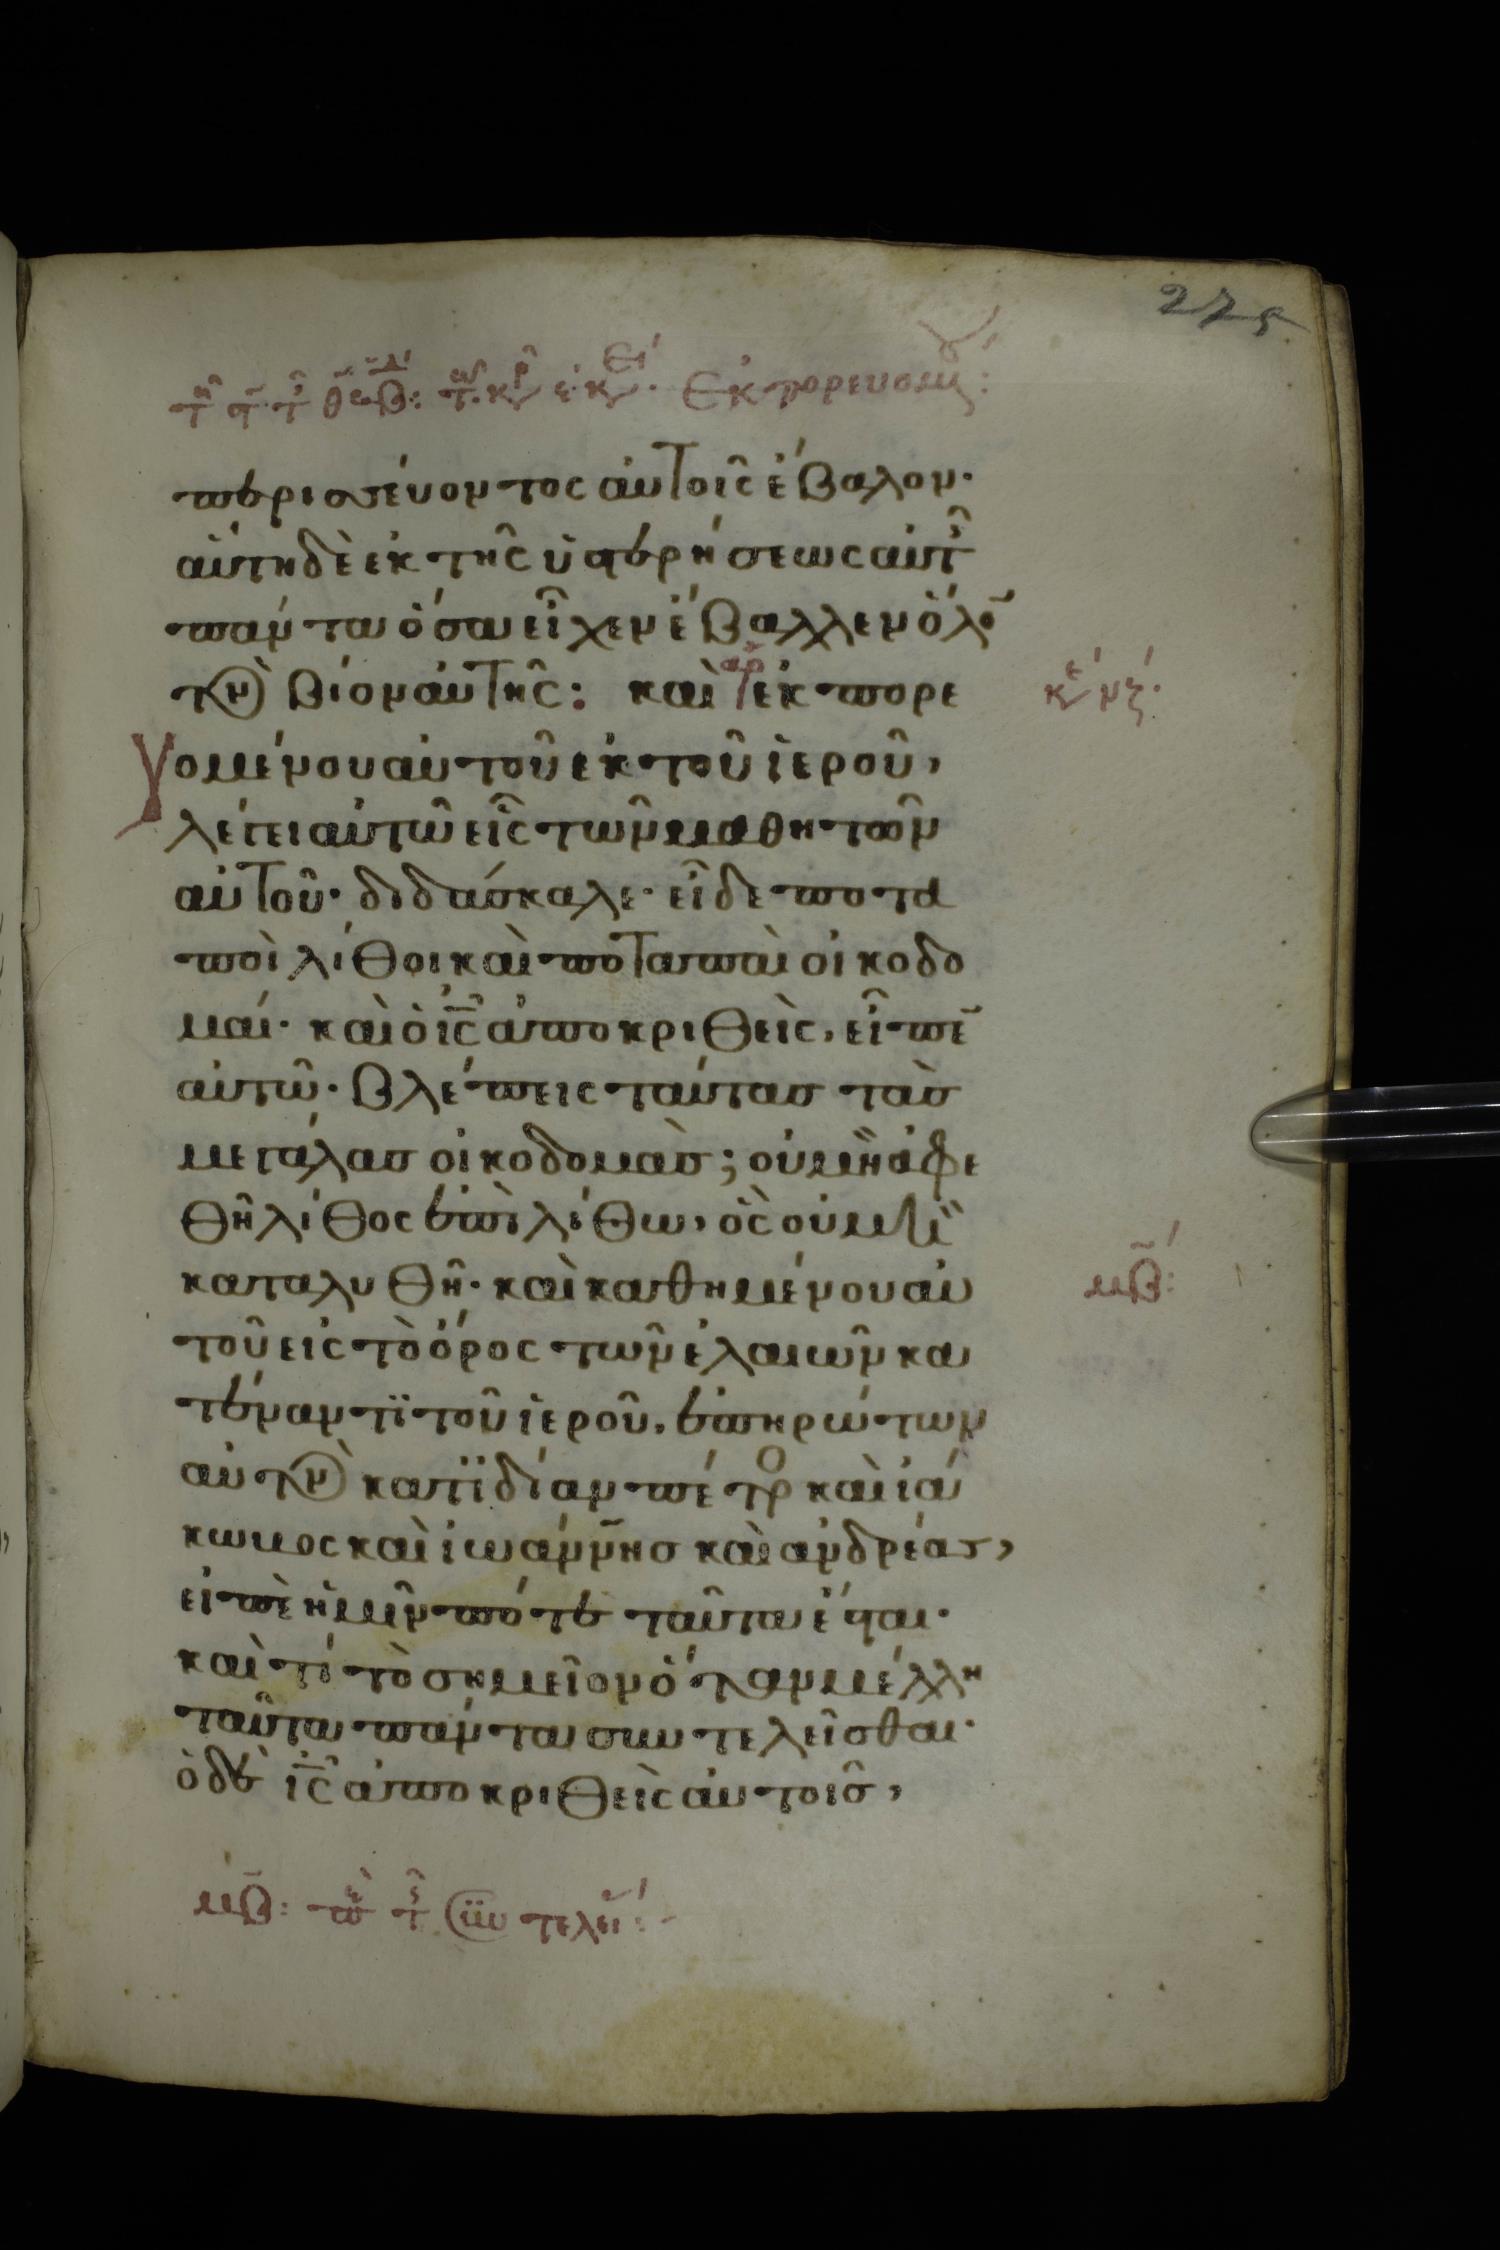 περισσεύοντος αὐτοῖς ἔβαλον·
αὕτη δὲ ἐκ τῆς ὑστερήσεως αὐτ
πάντα ὅσα εἶχεν ἔβαλλεν ὅλο
τὸν βίον αὐτῆς: καὶ ἐκπορε
υομένου αὐτοῦ ἐκ τοῦ ἱεροῦ,
λέγει αὐτῶ εἷς τῶν μαθητῶν
αὐτοῦ· διδάσκαλε· εἶδε ποτα
ποὶ λίθοι καὶ ποταπαὶ οἰκοδο
μαί· καὶ ὁ ις ἀποκριθεὶς, εἶπε
αὐτῶ· βλέπεις ταύτας τὰς
μεγάλας οἰκοδομάς; οὐ μὴ ἀφε
θῆ λίθος ἐπὶ λίθω, ὃς οὐ μὴ
καταλυθῆ· καὶ καθημένου αὐ
τοῦ εἰς τὸ ὄρος τῶν ἐλαιῶν κα
τέναντϊ τοῦ ἱεροῦ, ἐπηρώτων
αὐτὸν κατϊδίαν πέτρο καὶ ἰά
κωβος καὶ ἰωάννης καὶ ἀνδρέας,
εἰπὲ ἡμῖν πότε ταῦτα ἔσται·
καὶ τί τὸ σημεῖον ὅταν μέλλη
ταῦτα πάντα συντελεῖσθαι·
ὁ δὲ ις ἀποκριθεὶς αὐτοῖς,